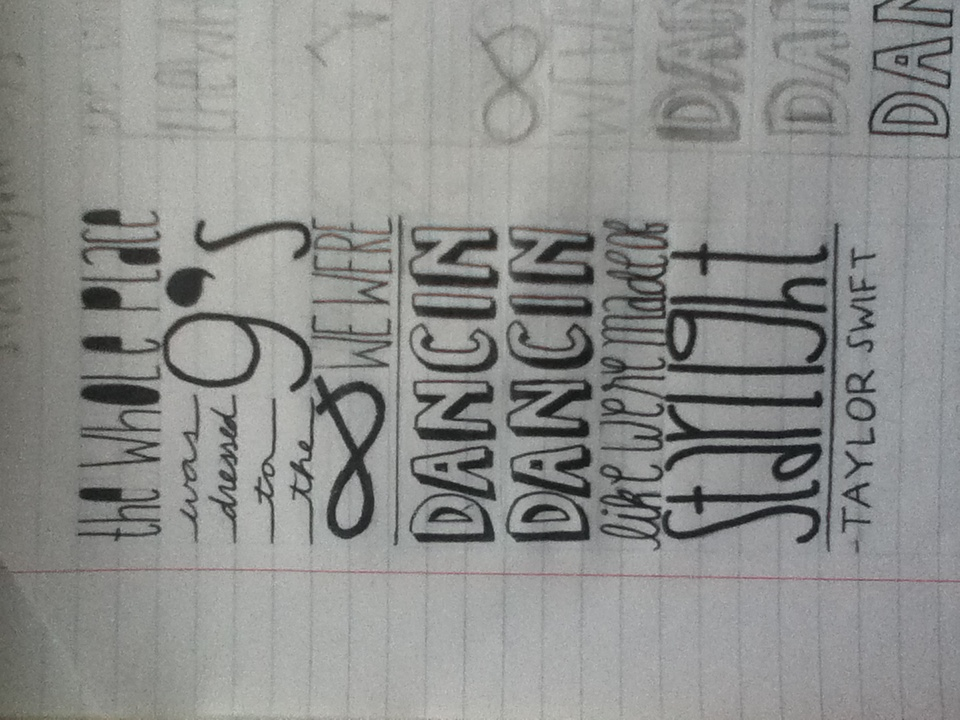 the whOLE PLacE
was
dressed
to
the
9's
& WE WERE
DANCIN
DANCIN
like were made of
Starlight
-TAYLOR SWIFT
DAN
DAN
DAN